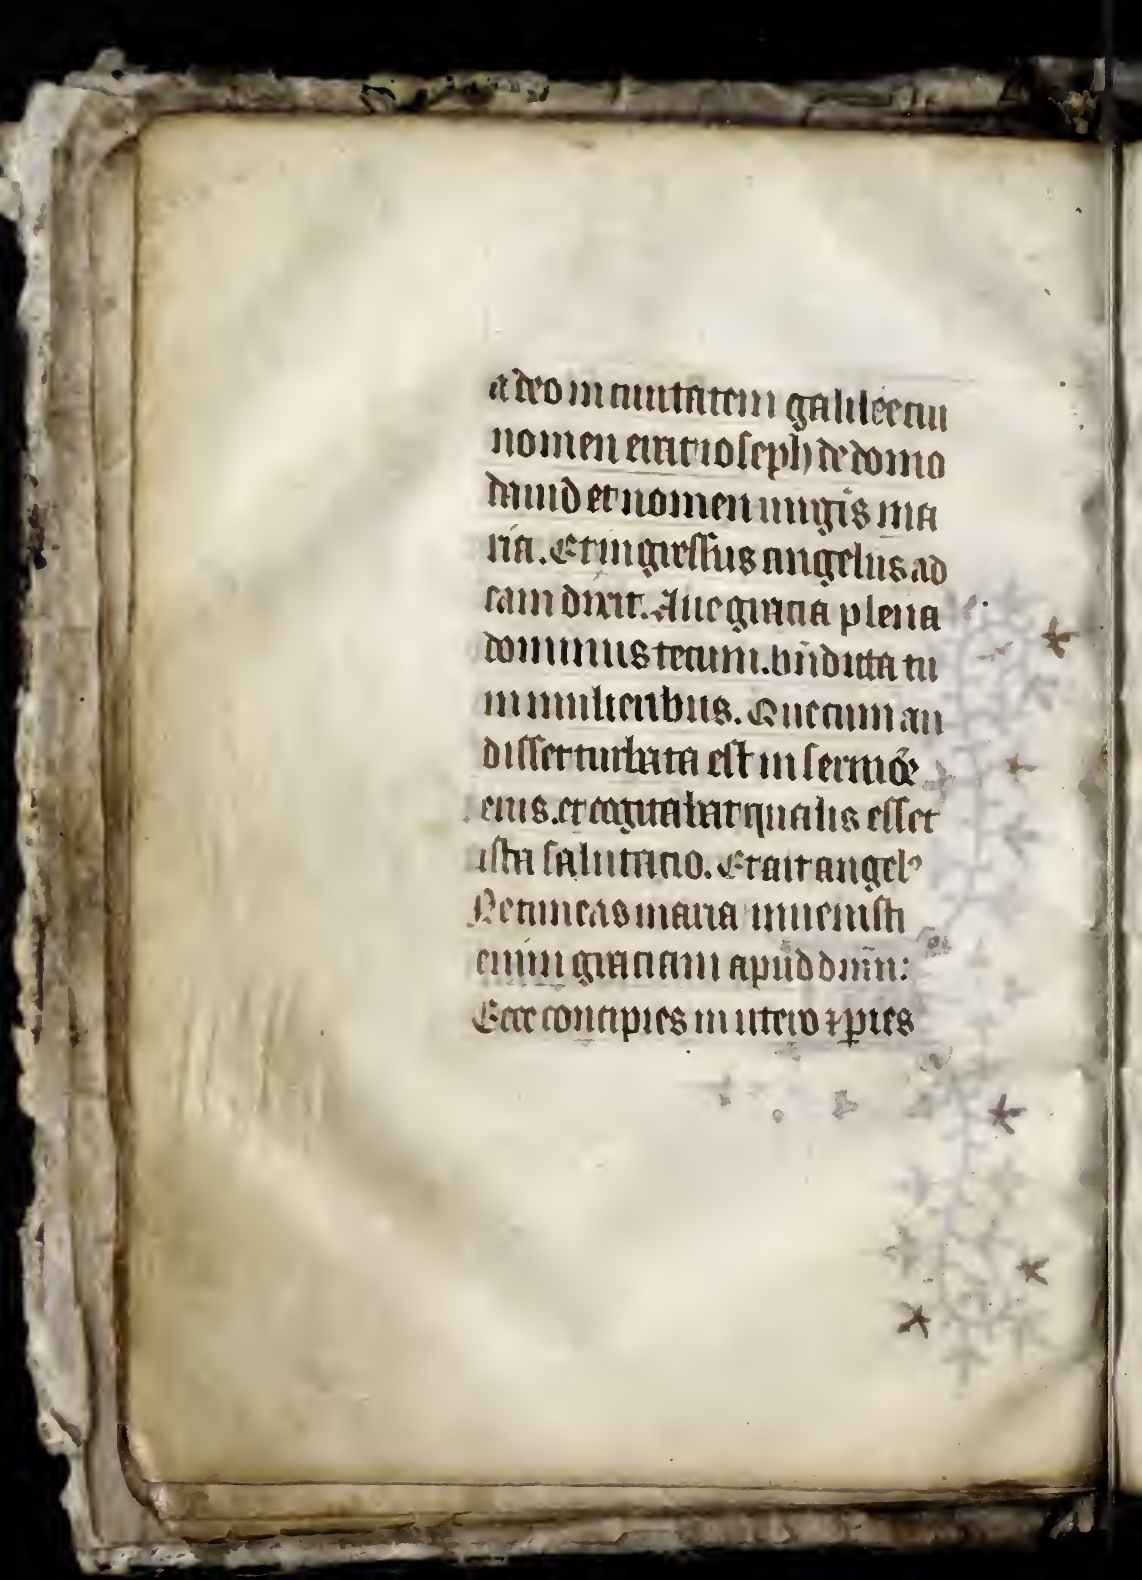 a deo in ciuitatem galilee cui
nomen erat ioseph de domo
dauid et nomen uirgis ma
ria. Et ingressus angelus ad
eam dixit. Aue gracia plena
dominus tecum. bn̄dicta tu
in mulieribus. Que cum au
disset turbata est in sermōe
eius. et cogitabat qualis esset
ista salutatio. Et ait angelꝰ
Ne timeas maria inuenisti
enim gratiam apud dnm̄:
Ecce concipies in utero ⁊ paries